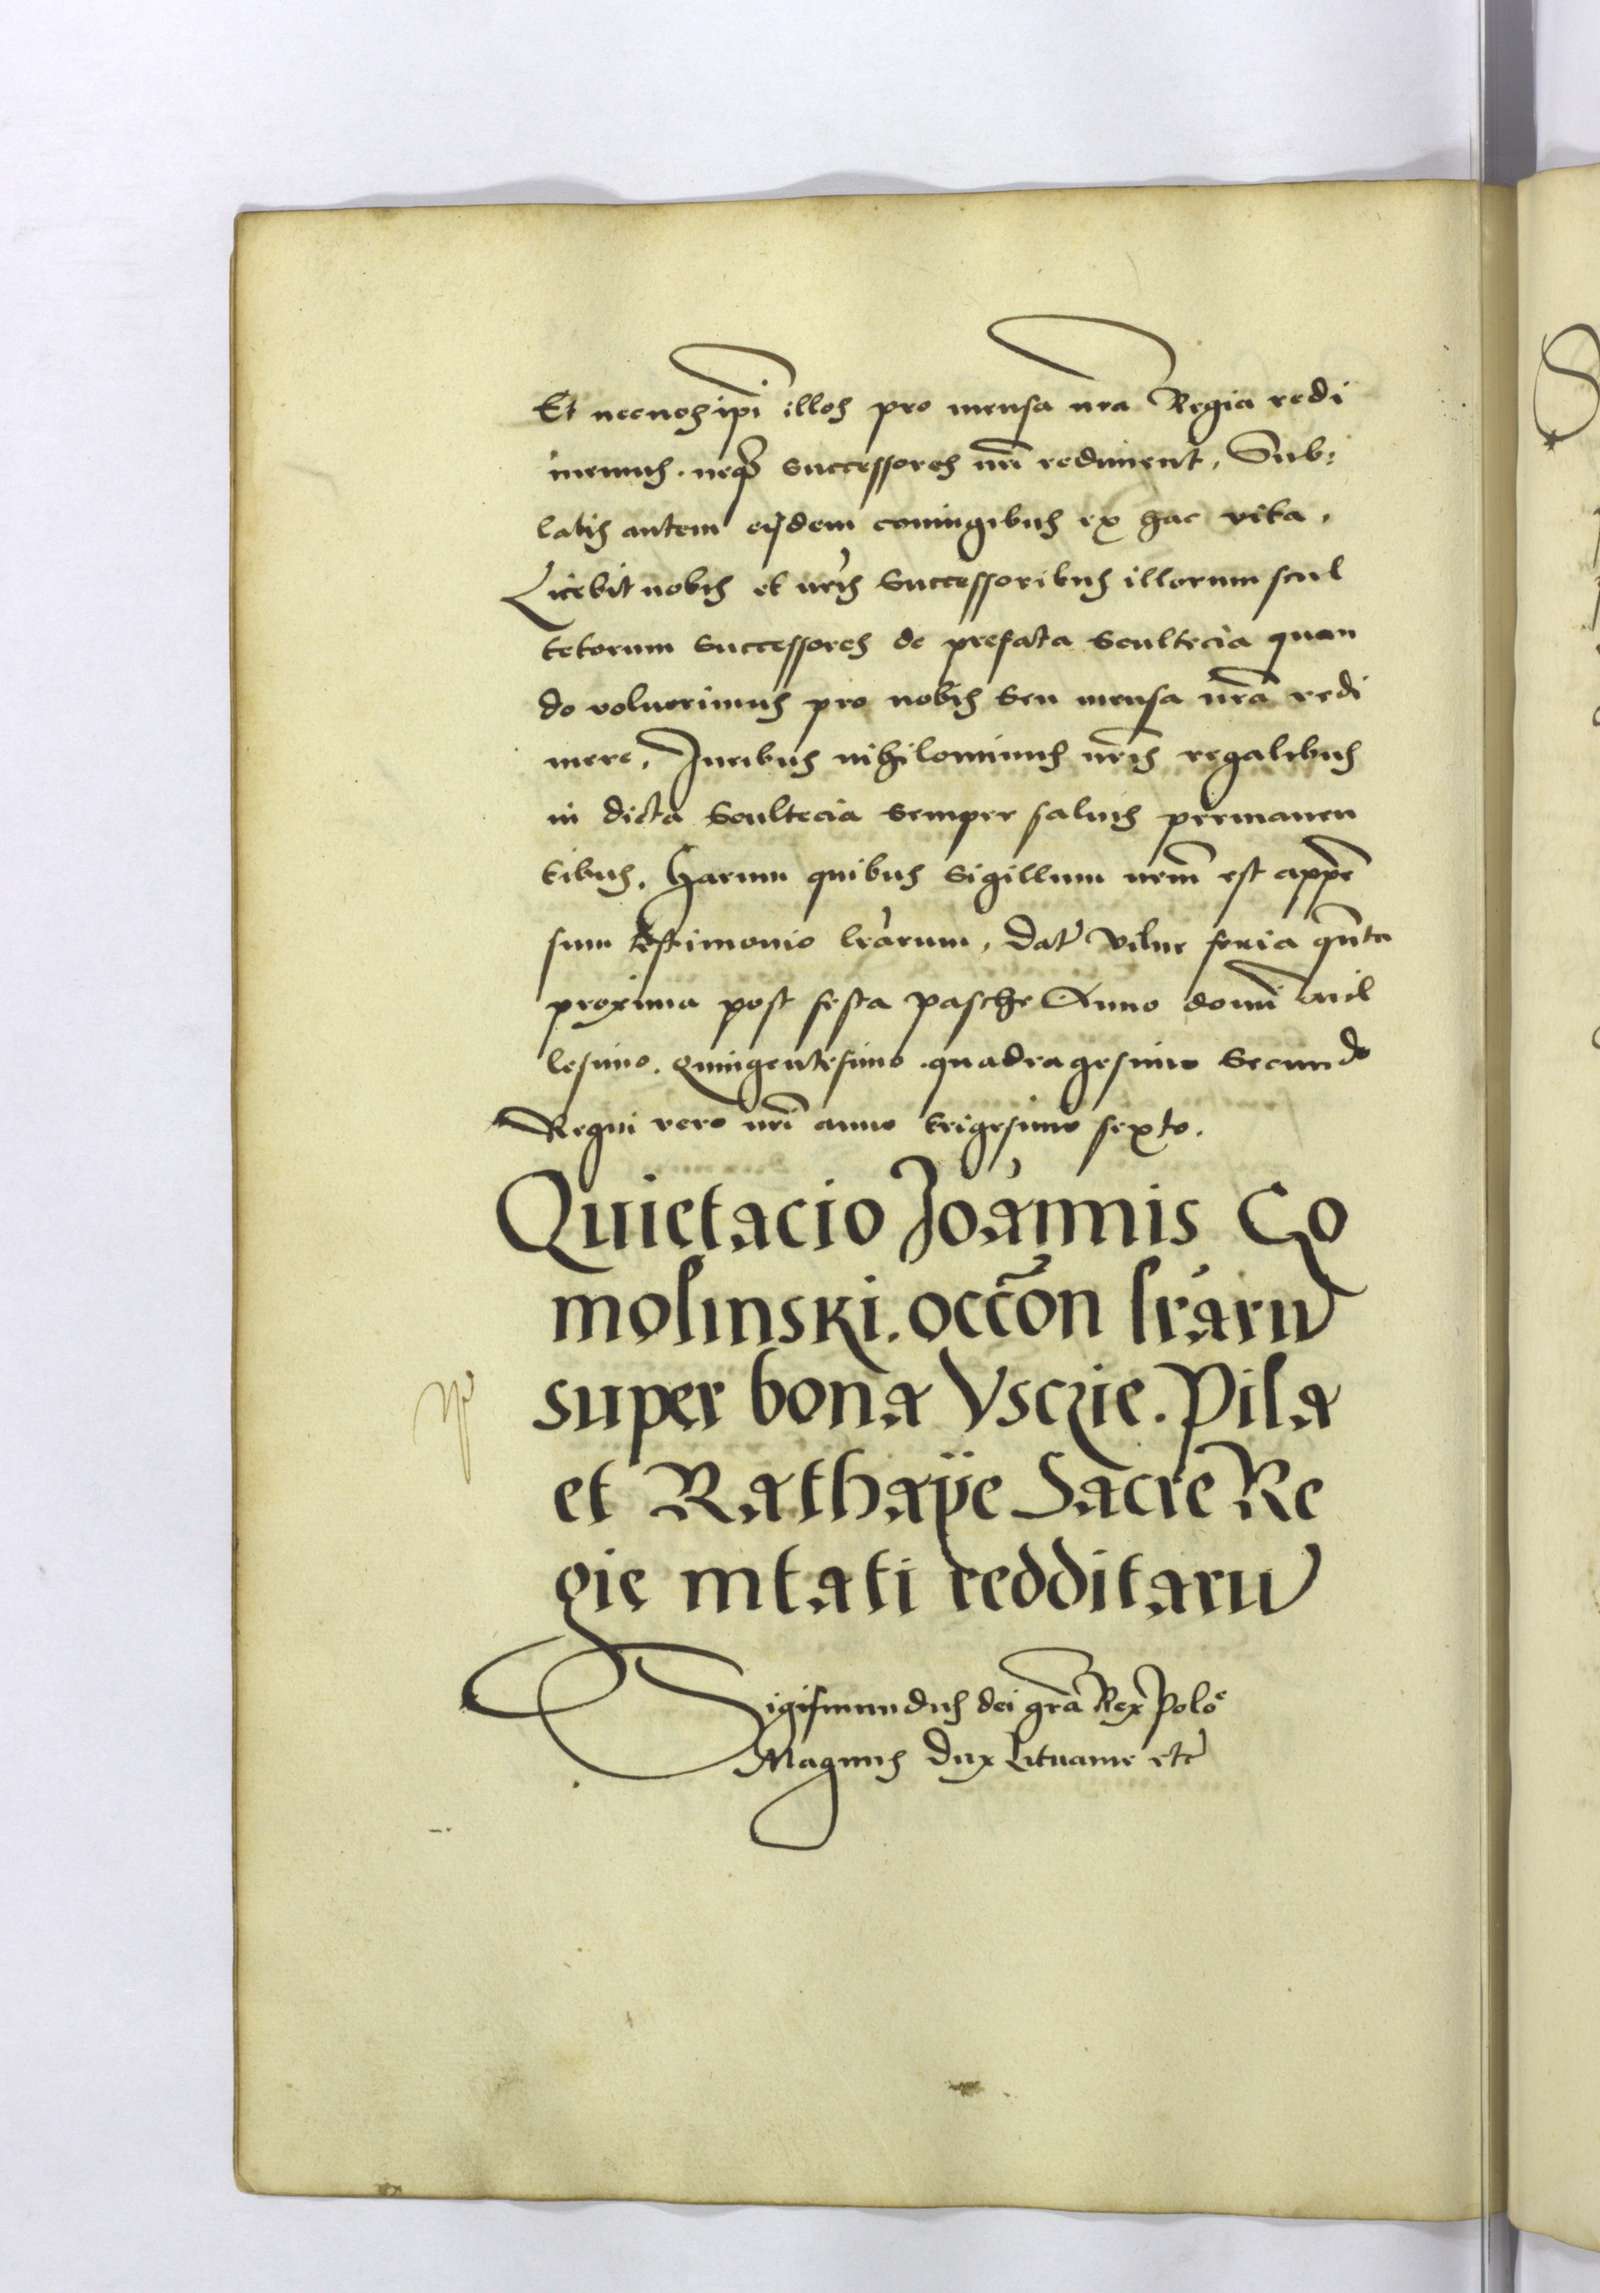 Et neenos ipi illos pro mensa nra Regia redi
memus. neqz successores nri rediment, Sub:
latis autem eisdem coniugibus ex hac vita.
Licebit nobis et nris Successoribus illorum scul
tetorum successores de prefata Scultecia quan
do voluerimus pro nobis seu mensa nra redi
mere, Iuribus nihilominus nris regalibus
in dicta Scultecia semper saluis permanen
tibus. Harum quibus Sigillum nrm est appen
sum testimonio lrarum, dat Vilne feria qnta
proxima post festa pasche Anno domi mil
lesimo. quingentesimo. quadragesimo secundo
Regni vero nri anno trigesimo sexto.
Quietacio Joannis Co
molinski. occon lraru
super bona Vsczie. Pila
et Rathaÿe Sacre Re
gie mtati redditaru
Sigismundus dei gra Rex Polo
Magnus Dux Lituanie etc